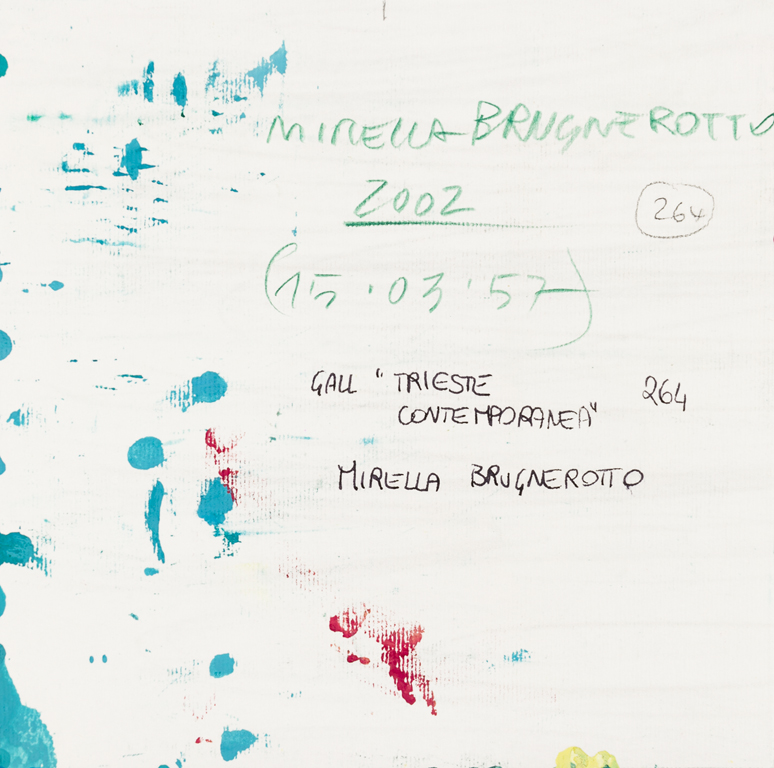 MIRELLA BRUGNEROTTO
2002
264
(15·03·57)
GALL "TRIESTE
CONTEMPORANEA"
264
MIRELLA BRUGNEROTTO